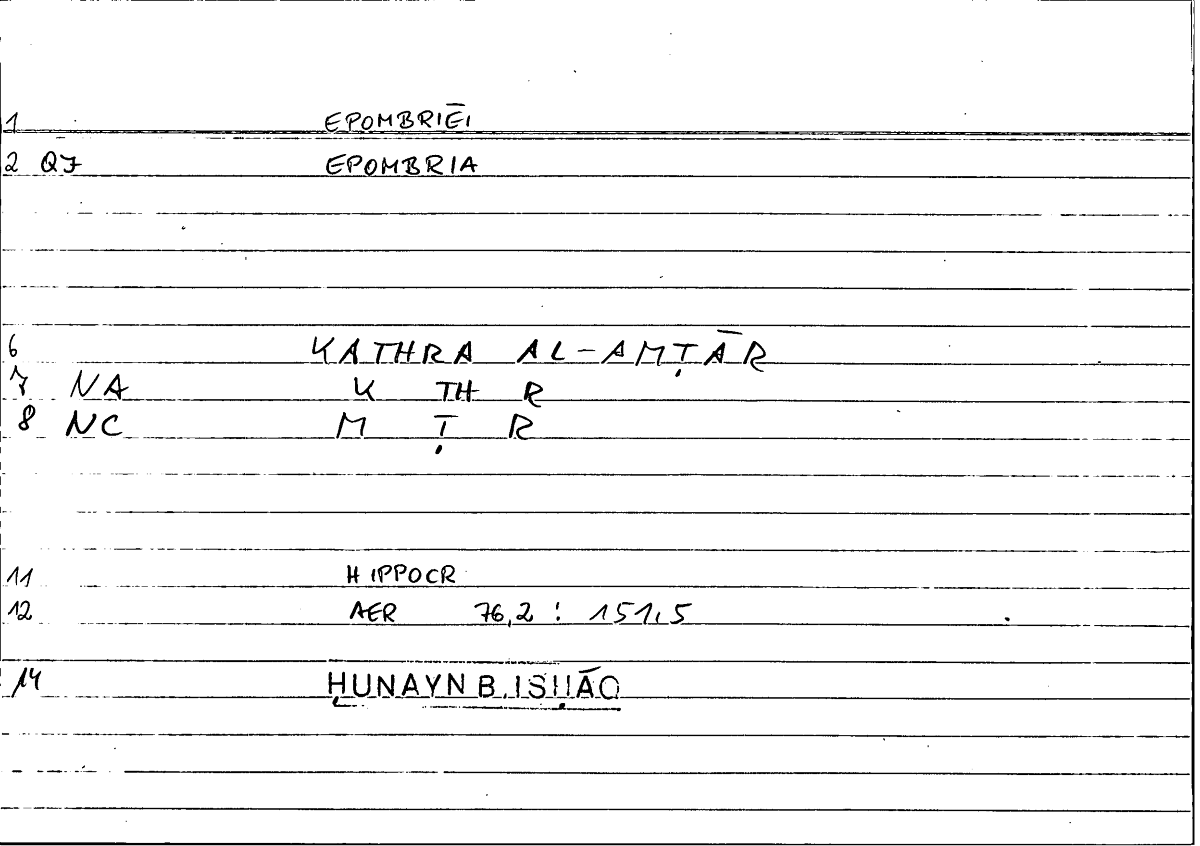 1 EPOMBRIĒI
2 QF EPOMBRIA
6 KATHRA AL-AMṬĀR
7 NA K TH R
8 NC M Ṭ R
11 HIPPOCR
12 AER 76,2 : 151,5
14 ḤUNAYN B. ISḤĀQ